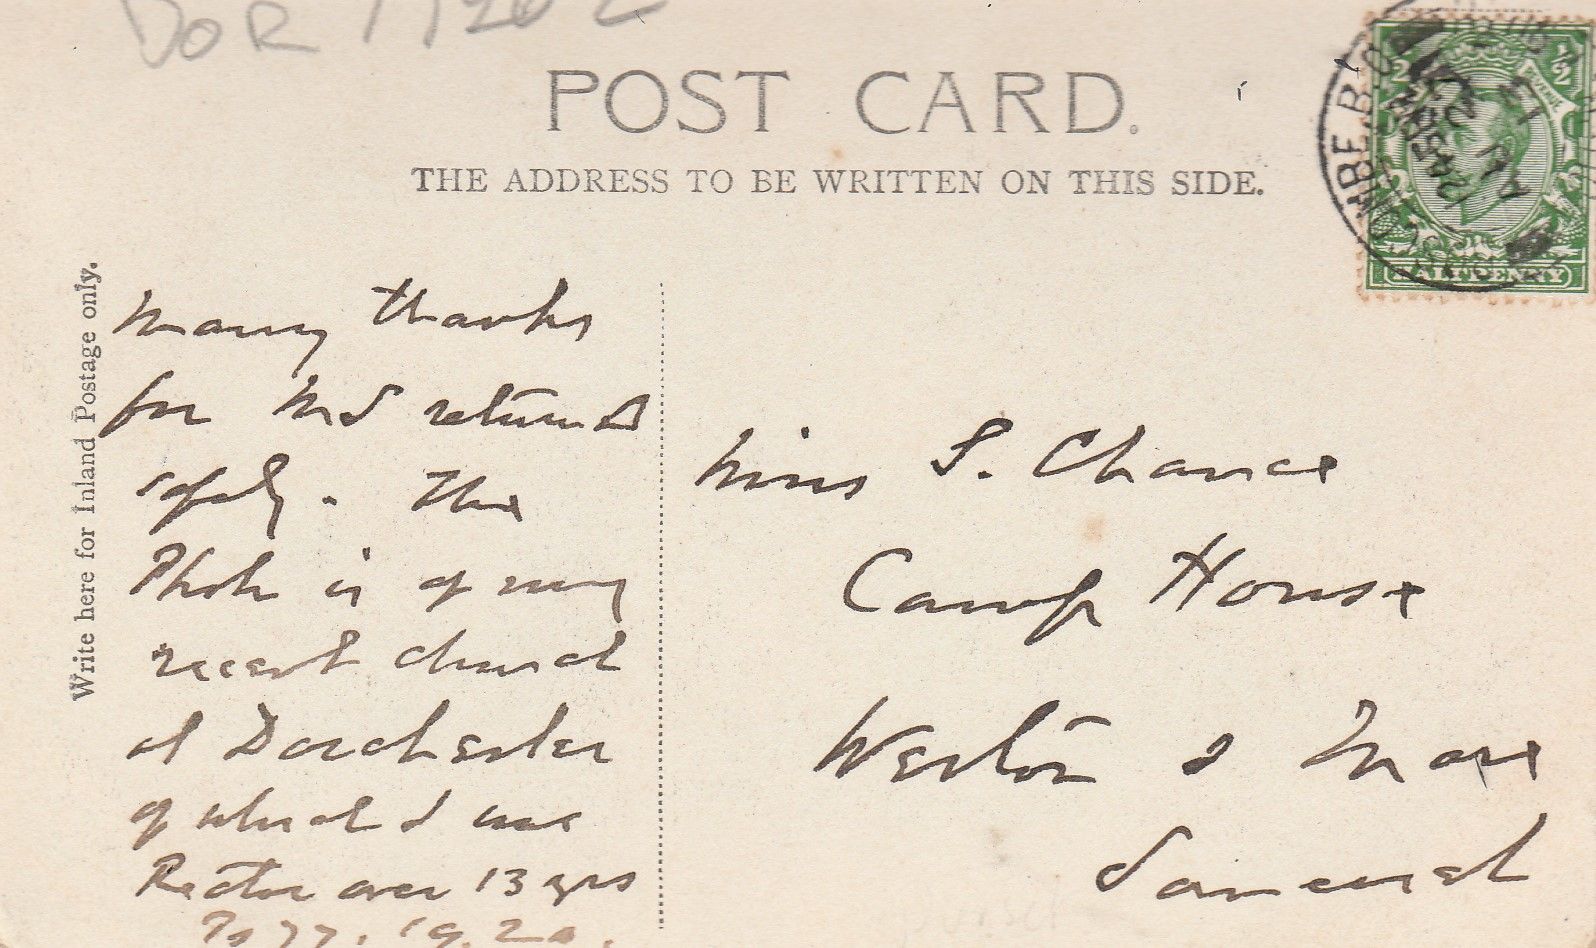 DOR
POST CARD.
THE ADDRESS TO BE WRITTEN ON THIS SIDE.
Write here for Inland Postage only.
Many thanks
for returned
safely. The
Photo is of my
recent church
at Dorchester
of which I was
Rector over 13 yrs
Miss S. Chance
Camp House
Weston S Mare
Somerset
HALFPENNY